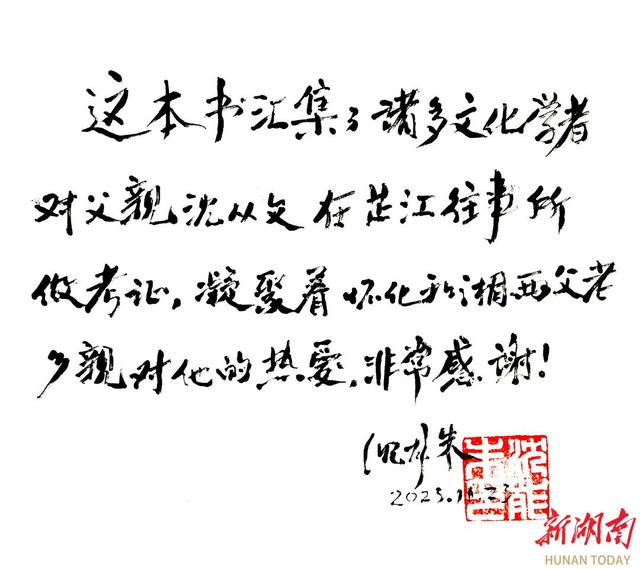 这本书汇集了诸多文化学者
对父亲沈从文在芷江往事所
做考证，凝聚着怀化和湘西父老
乡亲对他的热爱，非常感谢！
沈龙朱
新湖南
HUNAN TODAY